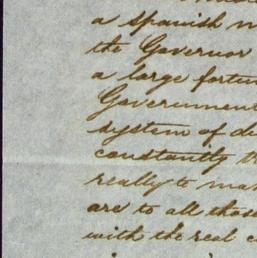 a Spanish
the Governor
a large
Government
system of
constantly
really to
are to all those
with the real